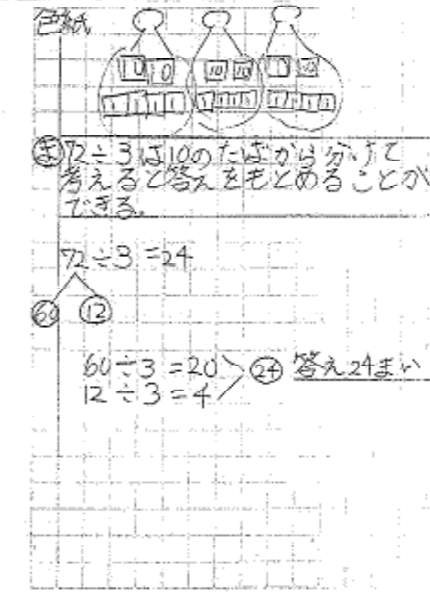 色紙
10 10 10 10 10 10
1 1 1 1 1 1 1 1 1 1 1 1
ま 72÷3は10のたばから分けて
考えると答えをもとめることが
できる。
72÷3=24
60 12
60÷3=20 24 答え24まい
12÷3=4